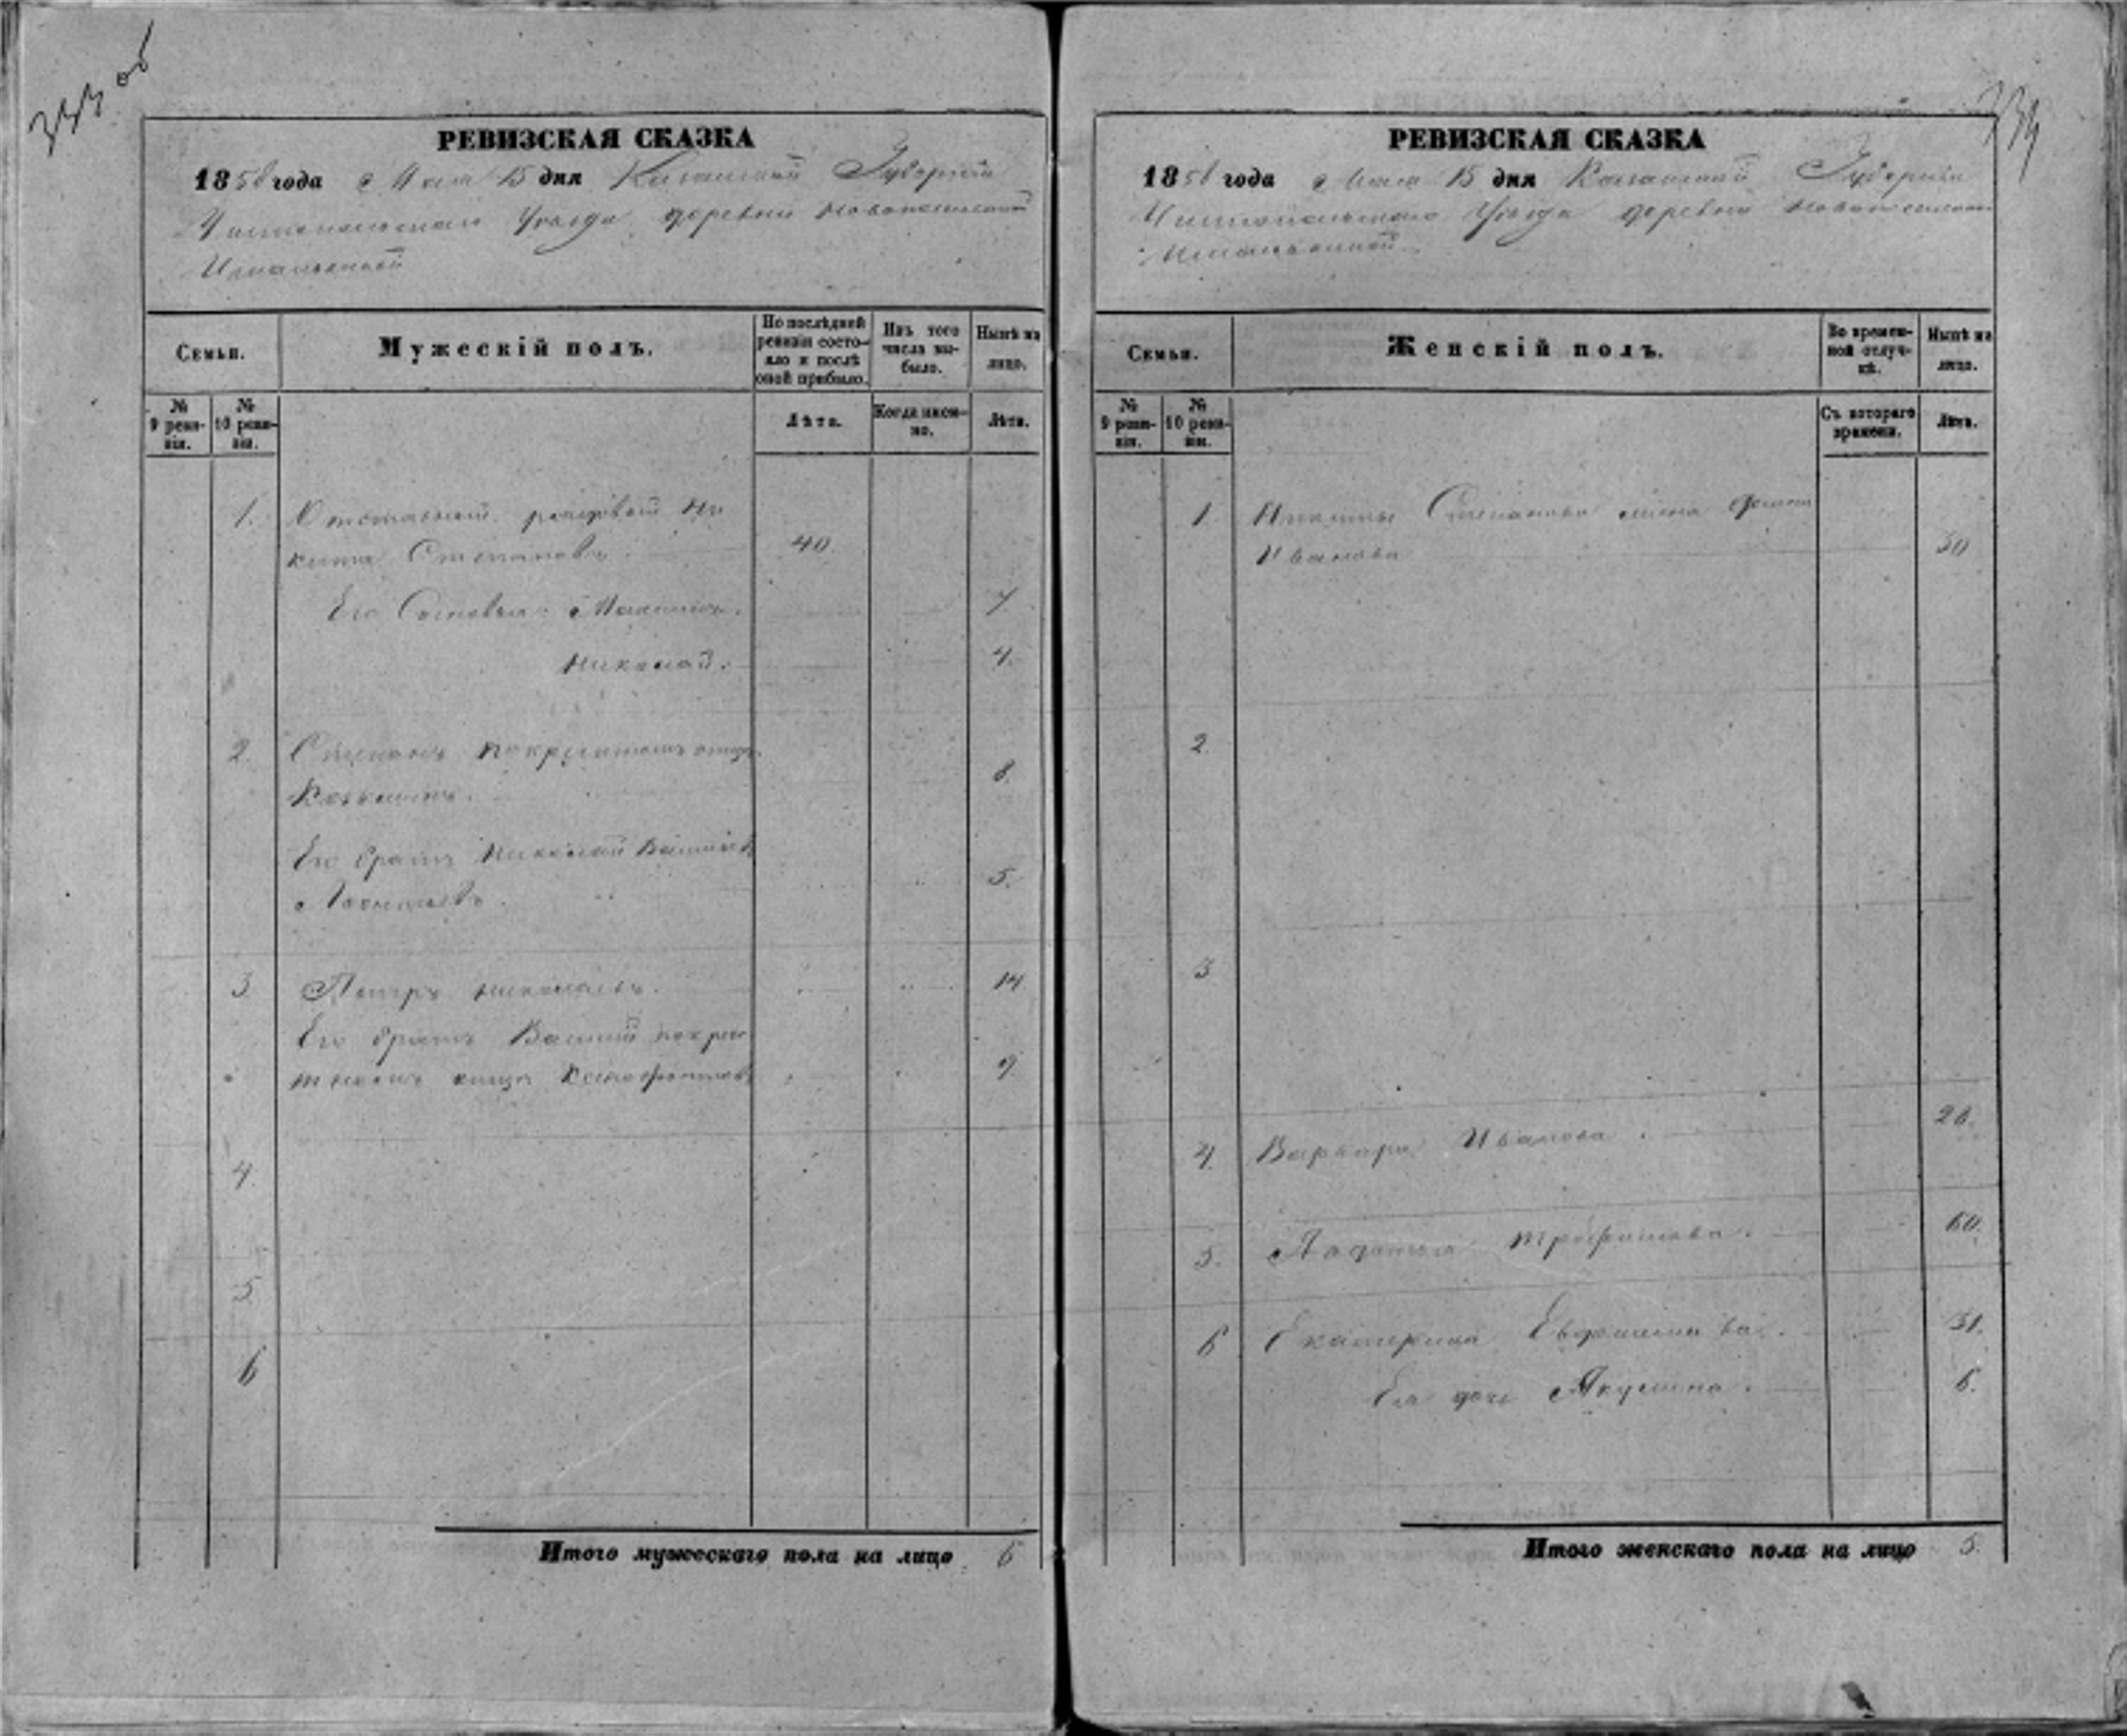 333 об
РЕВИЗСКАЯ СКАЗКА
1858 года Мая 15 дня Казанской Губернии
Чистопольскаго Уезда деревни Новопоселенной
Семьи.
Мужескій полъ.
По послѣдней ревизіи состояло и послѣ оной прибыло.
Изъ того числа выбыло.
Нынѣ на лицо.
№ 9 ревизіи.
№ 10 ревизіи.
Лѣта.
Когда именно.
Лѣта.
1. Отставной рядовой Ни
кита Степановъ. 40.
Его Сыновья: 7
Николай. 4.
2. Степанъ по крестном отцѣ 8.
Его братъ Николай
Леонтьевъ. 5.
3 Петръ Николаевъ. 14
Его братъ Василий по крес
тномъ отцѣ 9.
4.
5.
6
Итого мужескаго пола на лицо 6
334
РЕВИЗСКАЯ СКАЗКА
1858 года Мая 15 дня Казанской Губернии
Чистопольскаго Уезда деревни Новопоселенной
Семьи.
Женскій полъ.
Во временной отлучкѣ.
Нынѣ на лицо.
№ 9 ревизіи.
№ 10 ревизіи.
Съ котораго времени.
Лѣта.
1. Никиты Степанова жена
Иванова 30
2.
3
4. Варвара Иванова. 28.
5. Трофимова. 60.
6 Екатерина 31.
Ея дочь Акулина. 6.
Итого женскаго пола на лицо 5.